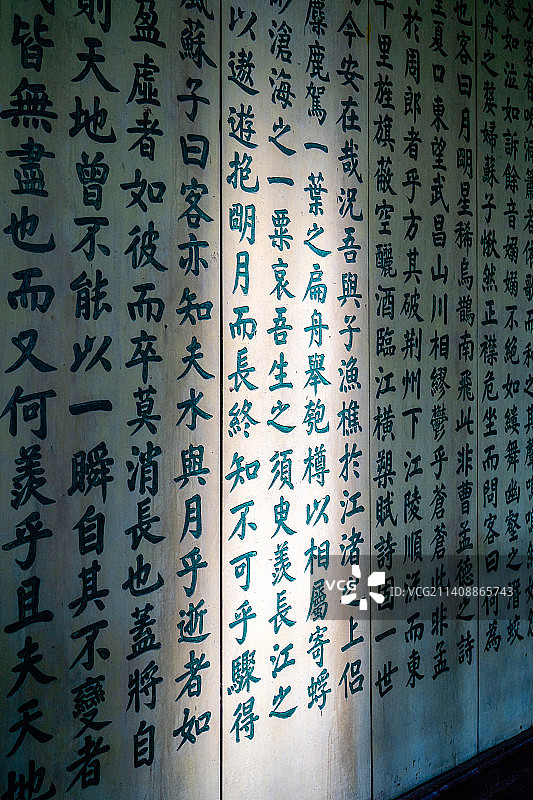 客有吹洞簫者倚歌而和之其聲嗚嗚然如怨
慕如泣如訴餘音嫋嫋不絕如縷舞幽壑之潛蛟
舟之嫠婦蘇子愀然正襟危坐而問客曰何為
也客曰月明星稀烏鵲南飛此非曹孟德之詩
望夏口東望武昌山川相繆鬱乎蒼蒼此非孟
於周郎者乎方其破荊州下江陵順流而東
千里旌旗蔽空釃酒臨江橫槊賦詩固一世
而今安在哉況吾與子漁樵於江渚之上侶
麋鹿駕一葉之扁舟舉匏樽以相屬寄蜉
渺滄海之一粟哀吾生之須臾羨長江之
以遨遊抱明月而長終知不可乎驟得
風蘇子曰客亦知夫水與月乎逝者如
盈虛者如彼而卒莫消長也蓋將自
則天地曾不能以一瞬自其不變者
我皆無盡也而又何羨乎且夫天地
視覺中國
VCG.COM
gettyimages
ID:VCG211408865743